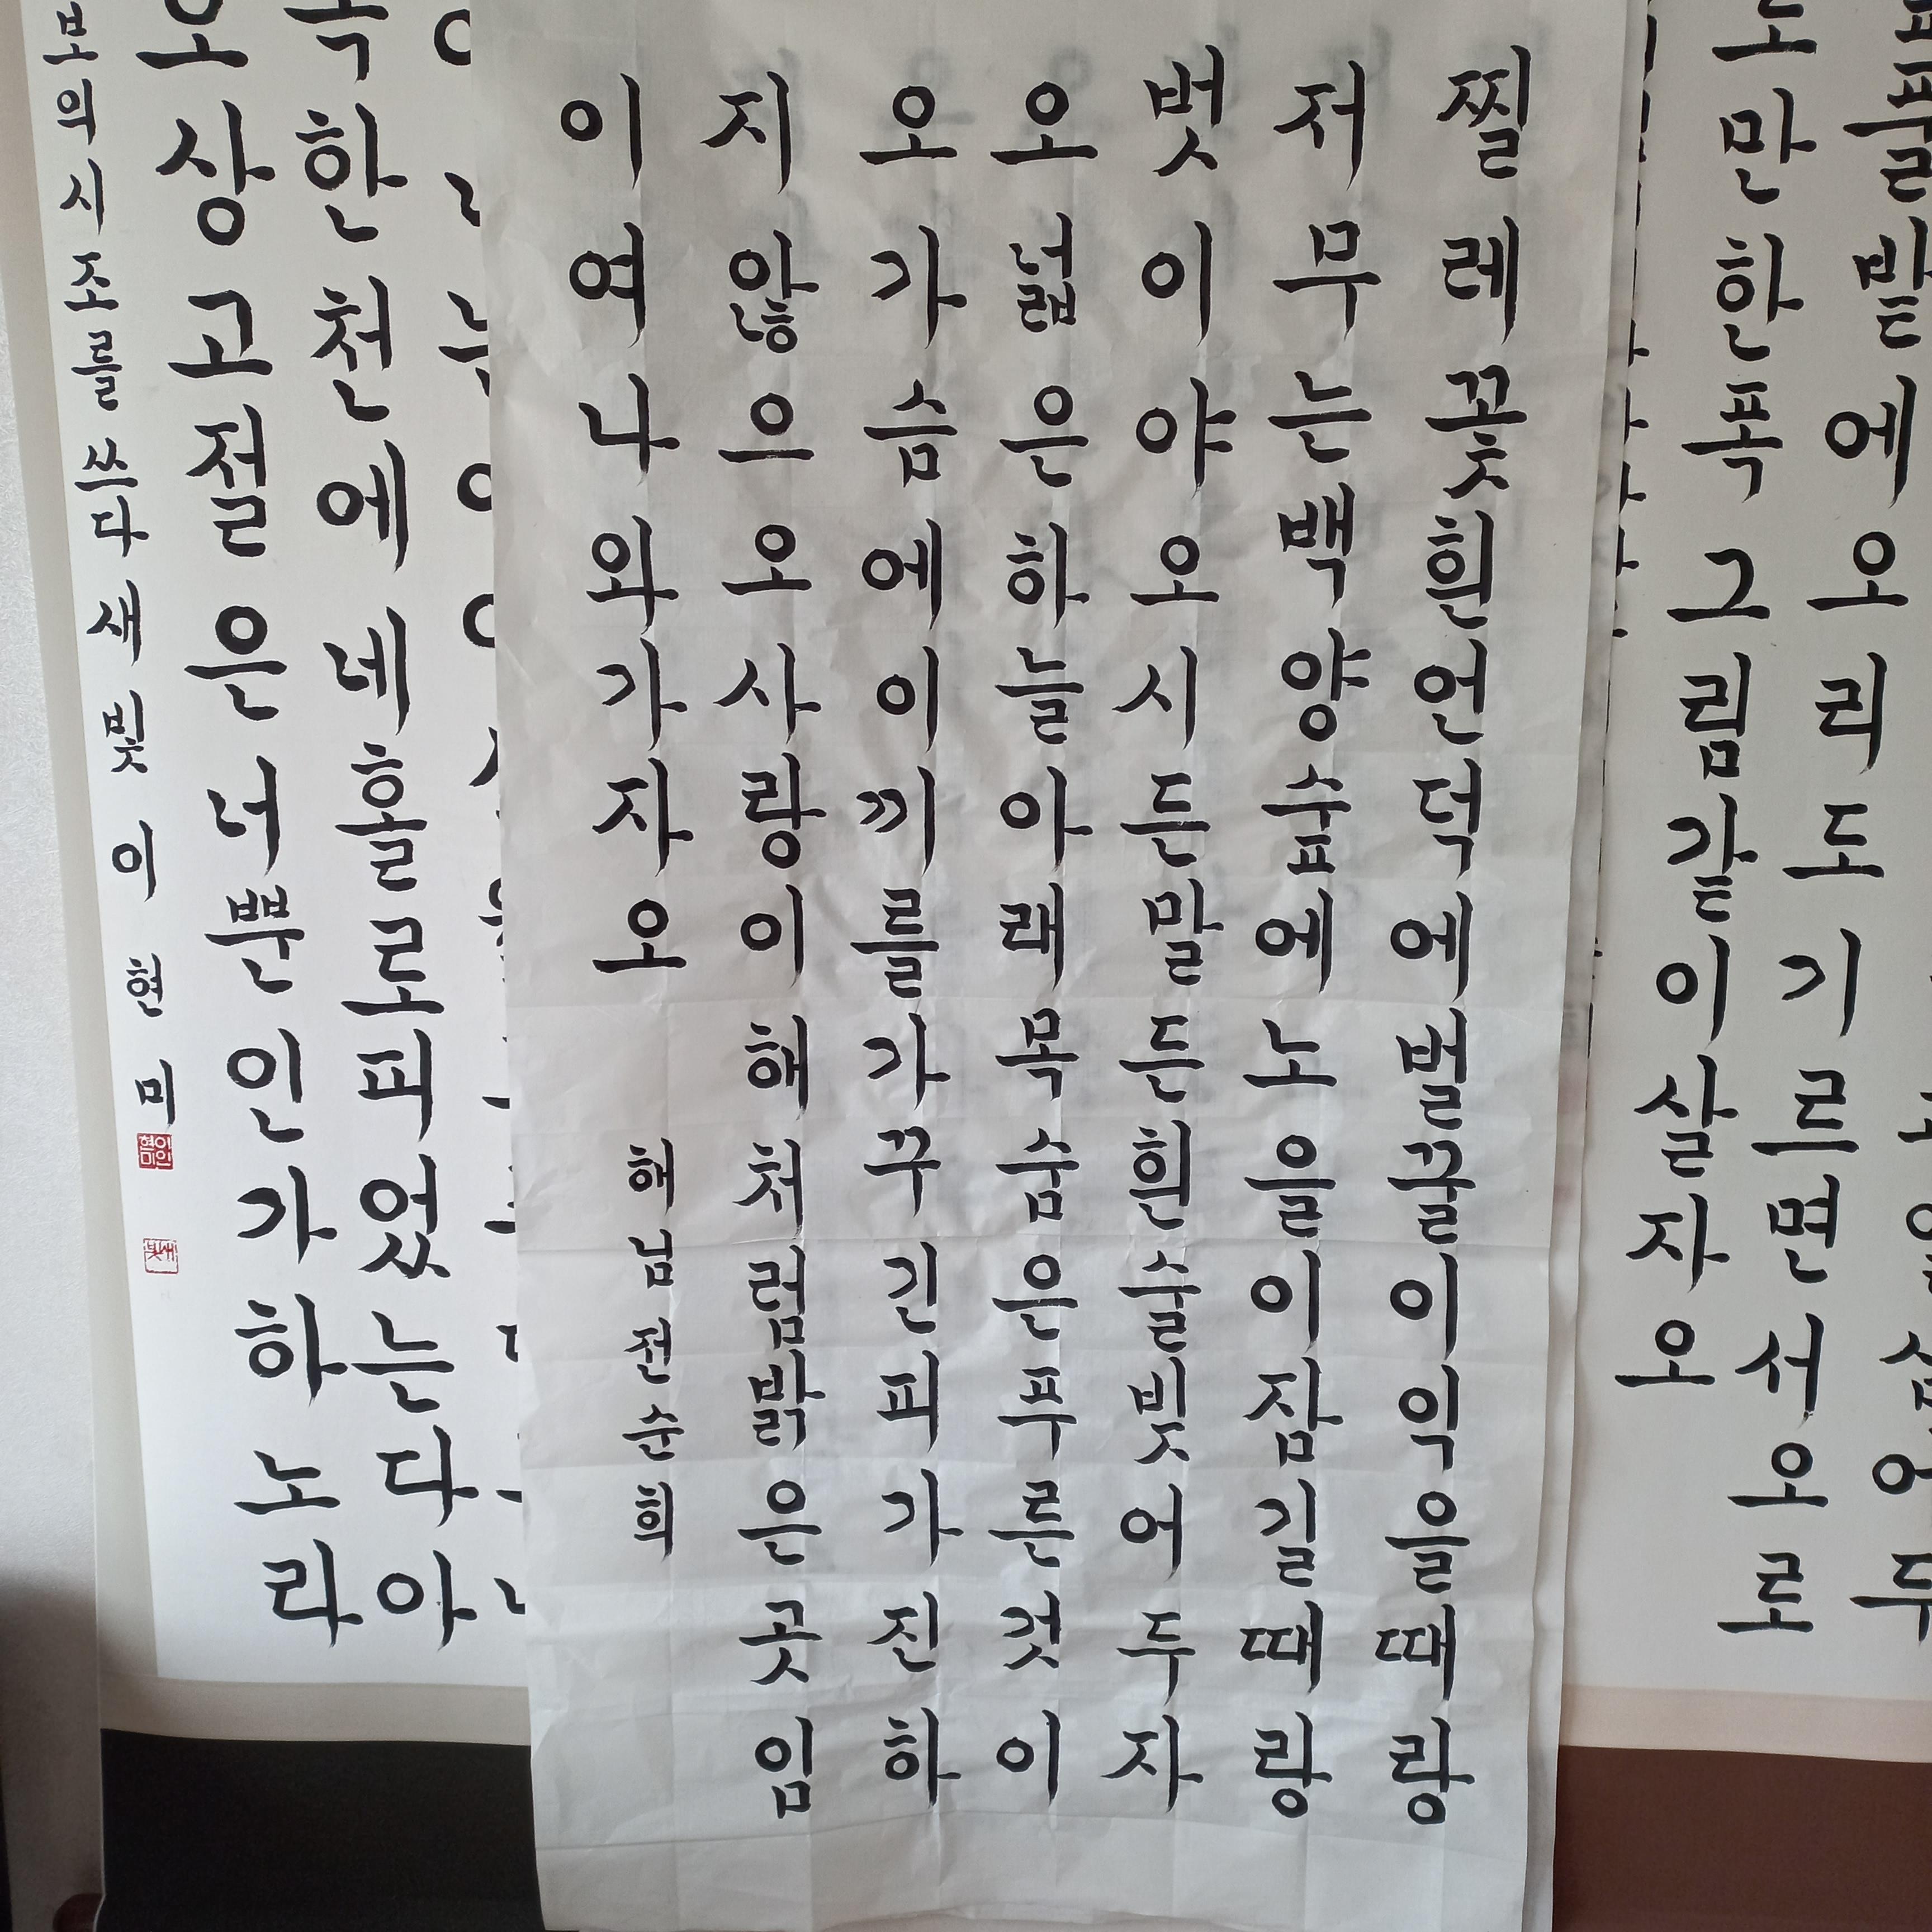 풀밭에오리도기르면서오로
만한폭그림같이살자오
찔레꽃흰언덕에벌꿀이익을때랑
저무는백양숲에노을이잠길때랑
벗이야오시든말든흰술빚어두자
오넓은하늘아래목숨은푸른것이
오가슴에이끼를가꾸긴피가진하
지않은오사랑이해처럼밝은곳임
이여나와가자오
해님전순희
한천에네홀로피었는다아
오상고절은너뿐인가하노라
보의시조를쓰다새빛이현미